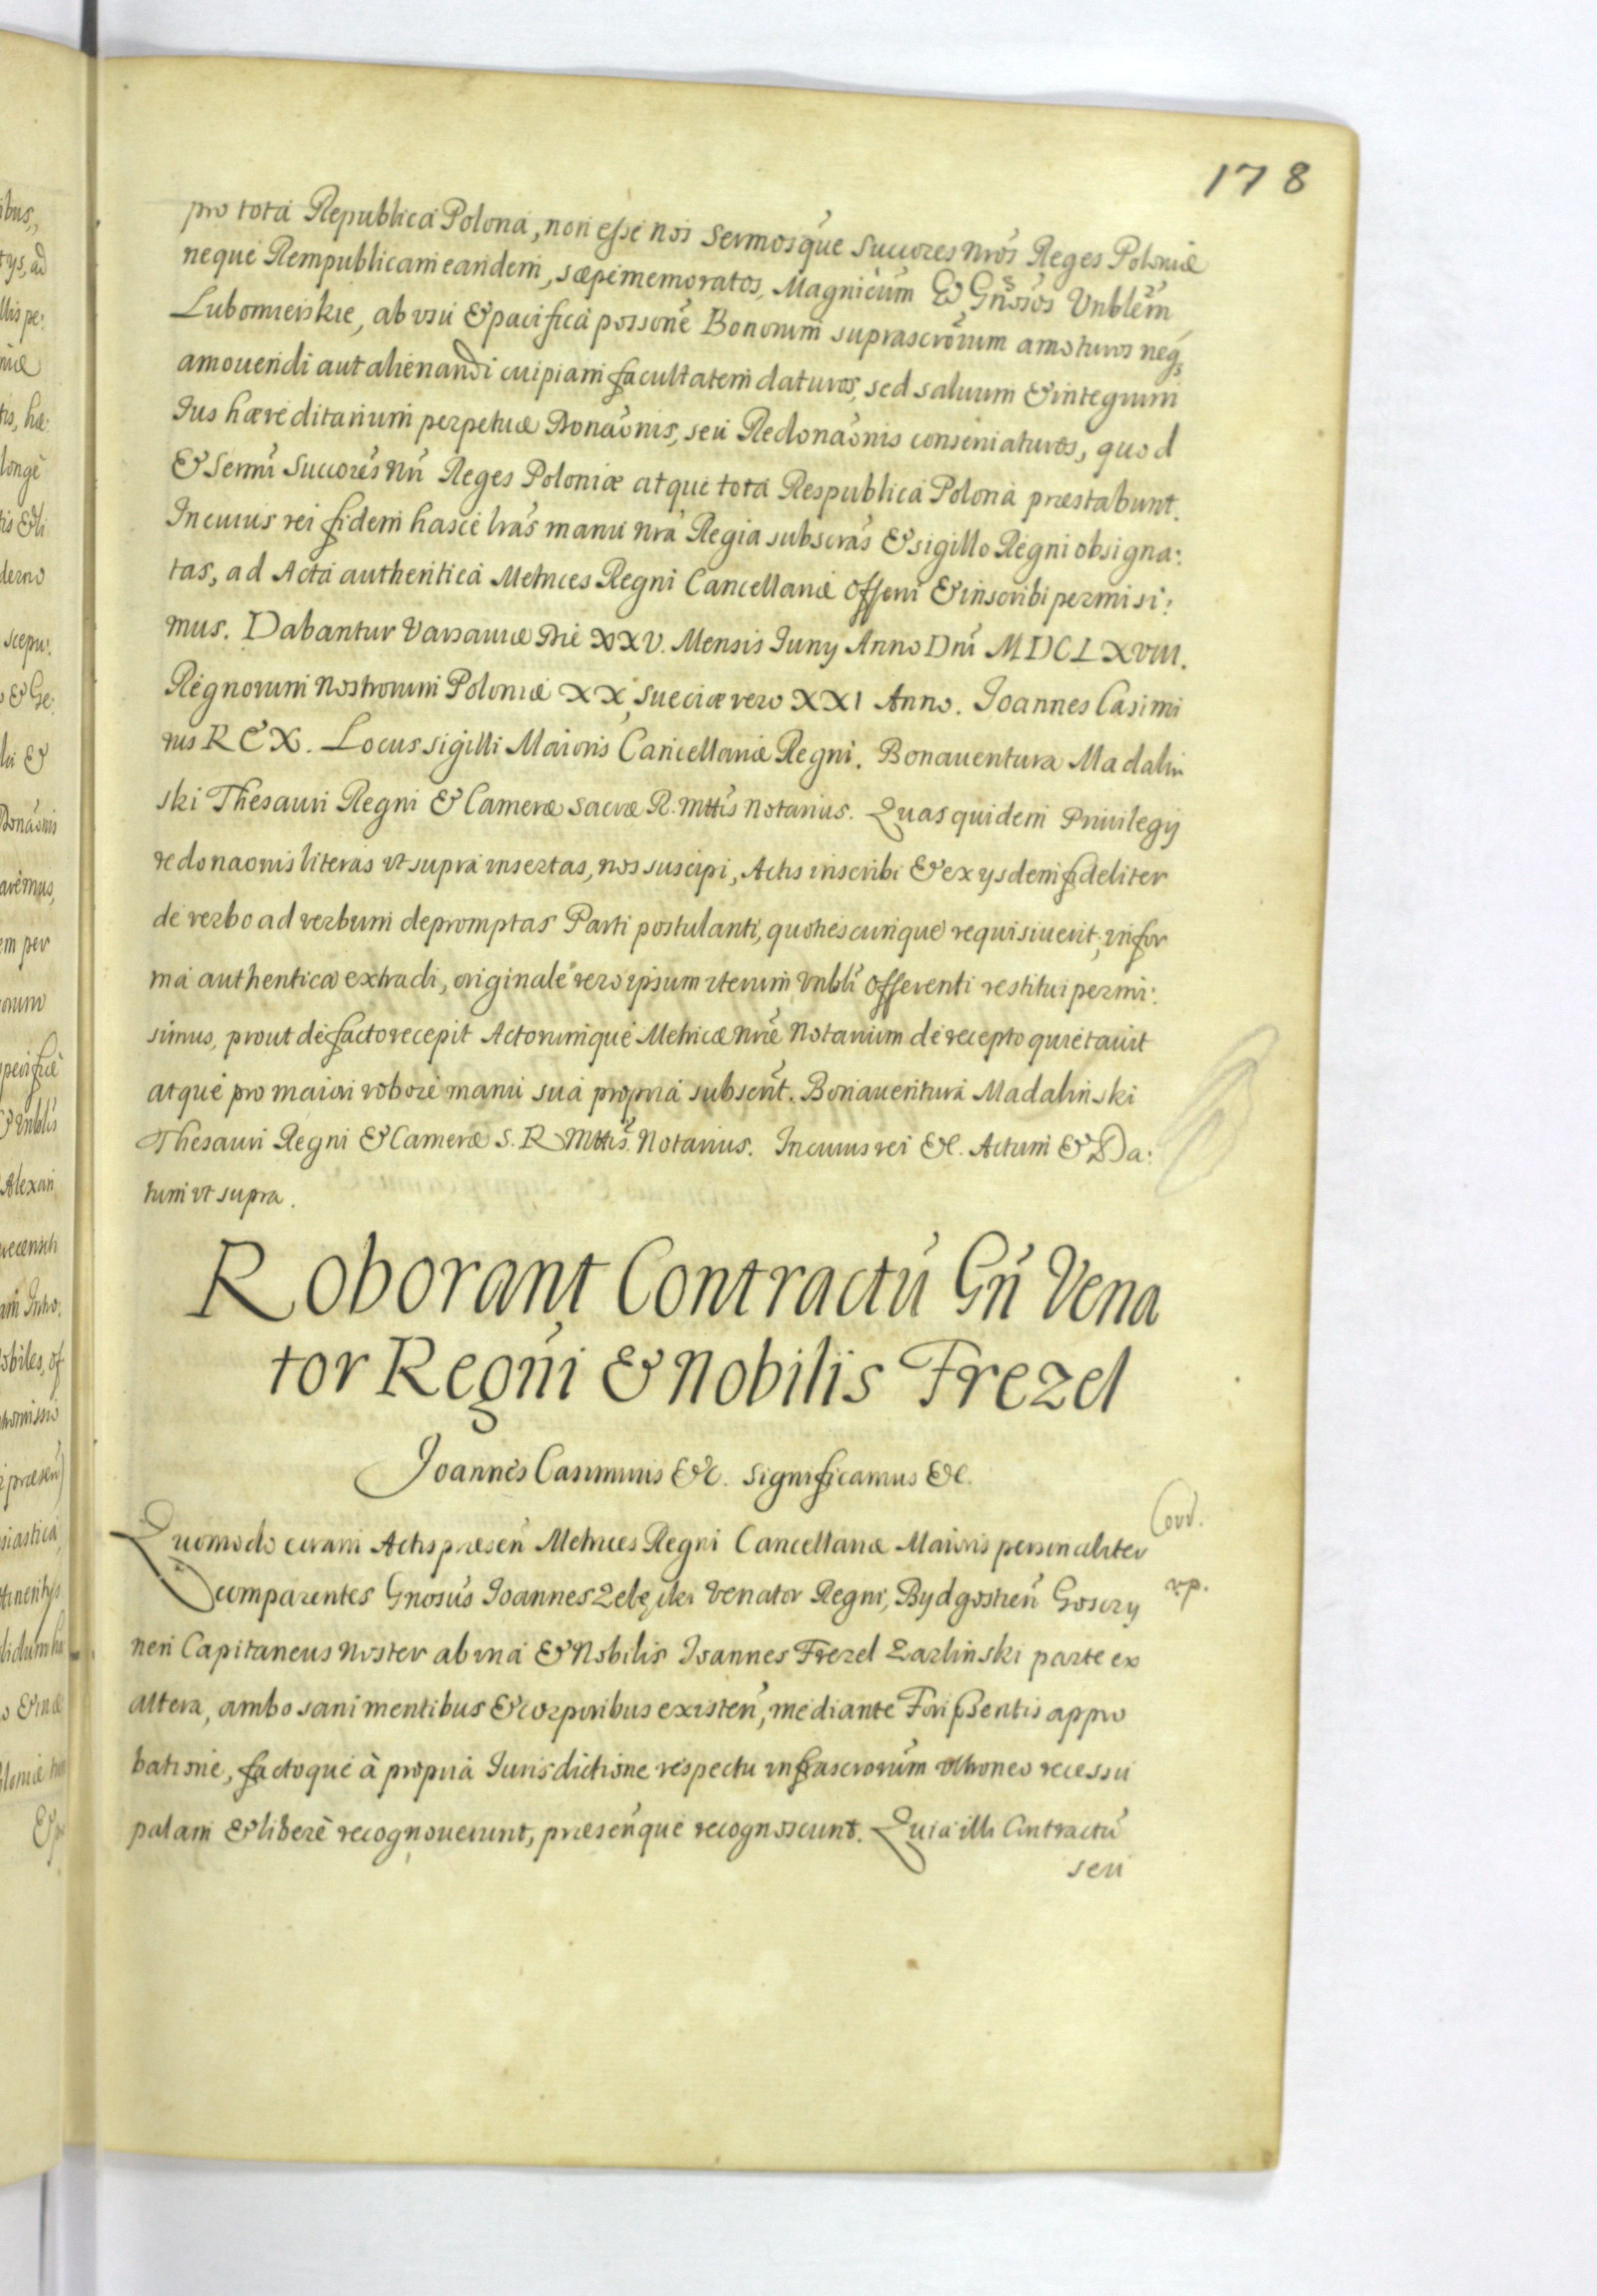 178
pro totá Republicá Poloná, non esse nos Sermosq̃ue Succores Nrõs Reges Poloniæ
neque Rempublicam eandem, sæpememoratos, Magnicum & Gnõsos Vnblẽm
Lubomierskie, ab vsu & pacificá possonẽ Bonorum suprascrõrum amoturos neq
amouendi aut alienandi cuipiam facultatem daturos, sed saluum & integrum
Ius hæreditarium perpetuæ Donaõnis, seu Redonaõnis conseruaturos, quod
& Sermi Succores Nri Reges Poloniæ atque totá Respublicá Poloná præstabunt.
In cuius rei fidem hasce lrãs manu nrã Regia subscrãs & sigillo Regni obsigna:
tas, ad Actá authenticá Metrices Regni Cancellariæ Offerri & inscribi permisi:
mus. Dabantur Varsauiæ Die XXV. Mensis Iuny Anno Dni MDCLXVIII.
Regnorum Nostrorum Poloniæ XX, Sueciæ vero XXI Anno. Joannes Casimi
rus REX. Locus sigilli Maioris Cancellariæ Regni. Bonauentura Madalin
ski Thesauri Regni & Cameræ Sacræ R. Mttis Notarius. Quas quidem Priuilegij
redonaonis literas vt supra insertas, nos suscipi, Actis inscribi & ex ysdem fideliter
de verbo ad verbum depromptas Parti postulanti, quotiescunque requisiuerit, in for
ma authentica extradi, originale vero ipsum iterum Vnbli Offerenti restitui permi:
simus, prout de facto recepit Actorumque Metricæ nrẽ Notarium de recepto quietauit
atque pro maiori robore manu suá propriá subscrit. Bonauenturá Madalinski
Thesauri Regni & Cameræ S. R. Mttis Notarius. In cuius rei &c. Actum & Da:
tum vt supra.
Roborant Contractũ Gñ Vena
tor Regni & Nobilis Frezel
Joannes Casimirus &c. Significamus &c.
Quomodo coram Actis præseñ Metrices Regni Cancellariæ Maioris personaliter
comparentes Gnosus Joannes Zebẹski Venator Regni, Bydgostień Gosczy
nen Capitaneus Noster ab vná & Nobilis Joannes Frezel Zarlinski parte ex
altera, ambo sani mentibus & corporibus existeñ, mediante Fori Psentis appro
batione, factoque à propriá Iurisdictione respectu infrascrorum vltroneo recessu
palam & liberè recognouerunt, præseñque recognoscunt. Quia illi Contractũ
seu